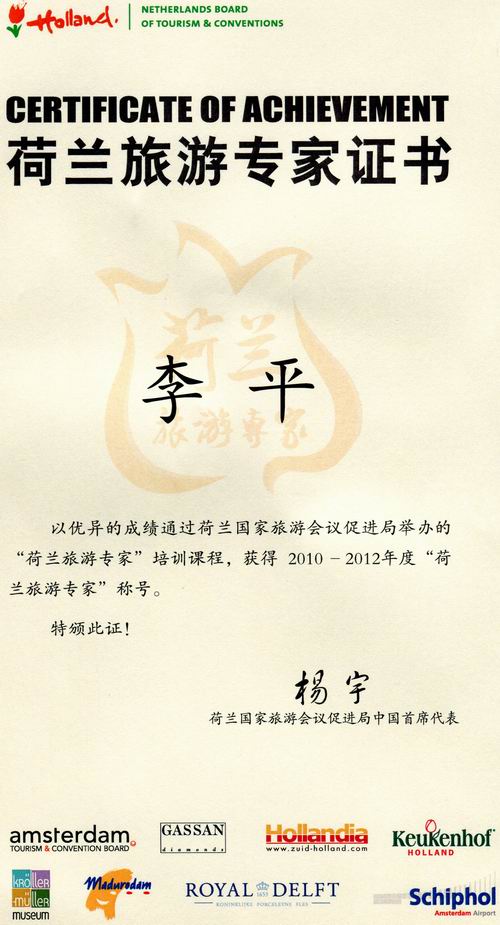 Holland.
NETHERLANDS BOARD
OF TOURISM & CONVENTIONS
CERTIFICATE OF ACHIEVEMENT
荷兰旅游专家证书
荷兰
旅游專家
李 平
以优异的成绩通过荷兰国家旅游会议促进局举办的
“荷兰旅游专家”培训课程，获得 2010－2012年度“荷
兰旅游专家”称号。
特颁此证！
杨宇
荷兰国家旅游会议促进局中国首席代表
amsterdam
TOURISM & CONVENTION BOARD
GASSAN
diamonds
Hollandia
www.zuid-holland.com
Keukenhof®
HOLLAND
KRÖLLER
MÜLLER
museum
Madurodam
ROYAL DELFT
1653
KONINKLIJKE PORCELEYNE FLES
Schiphol
Amsterdam Airport